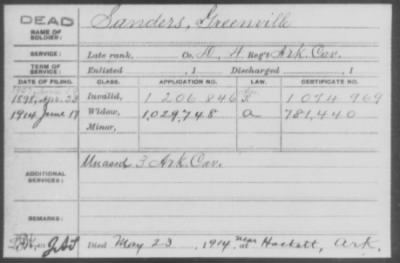 DEAD
NAME OF SOLDIER: Sanders, Greenville
SERVICE: Late rank, Co. D, 4 Reg't Ark. Cav.
TERM OF SERVICE: Enlisted , 1 Discharged , 1
DATE OF FILING. CLASS. APPLICATION NO. LAW. CERTIFICATE NO.
1898, Apr. 23 Invalid, 1206846 1074969
1914 June 17 Widow, 1,029,748 a 781,440
Minor,
ADDITIONAL SERVICES: Unassd 3 Ark. Cav.
REMARKS:
Died May 23, 1914, near at Hackett, Ark.